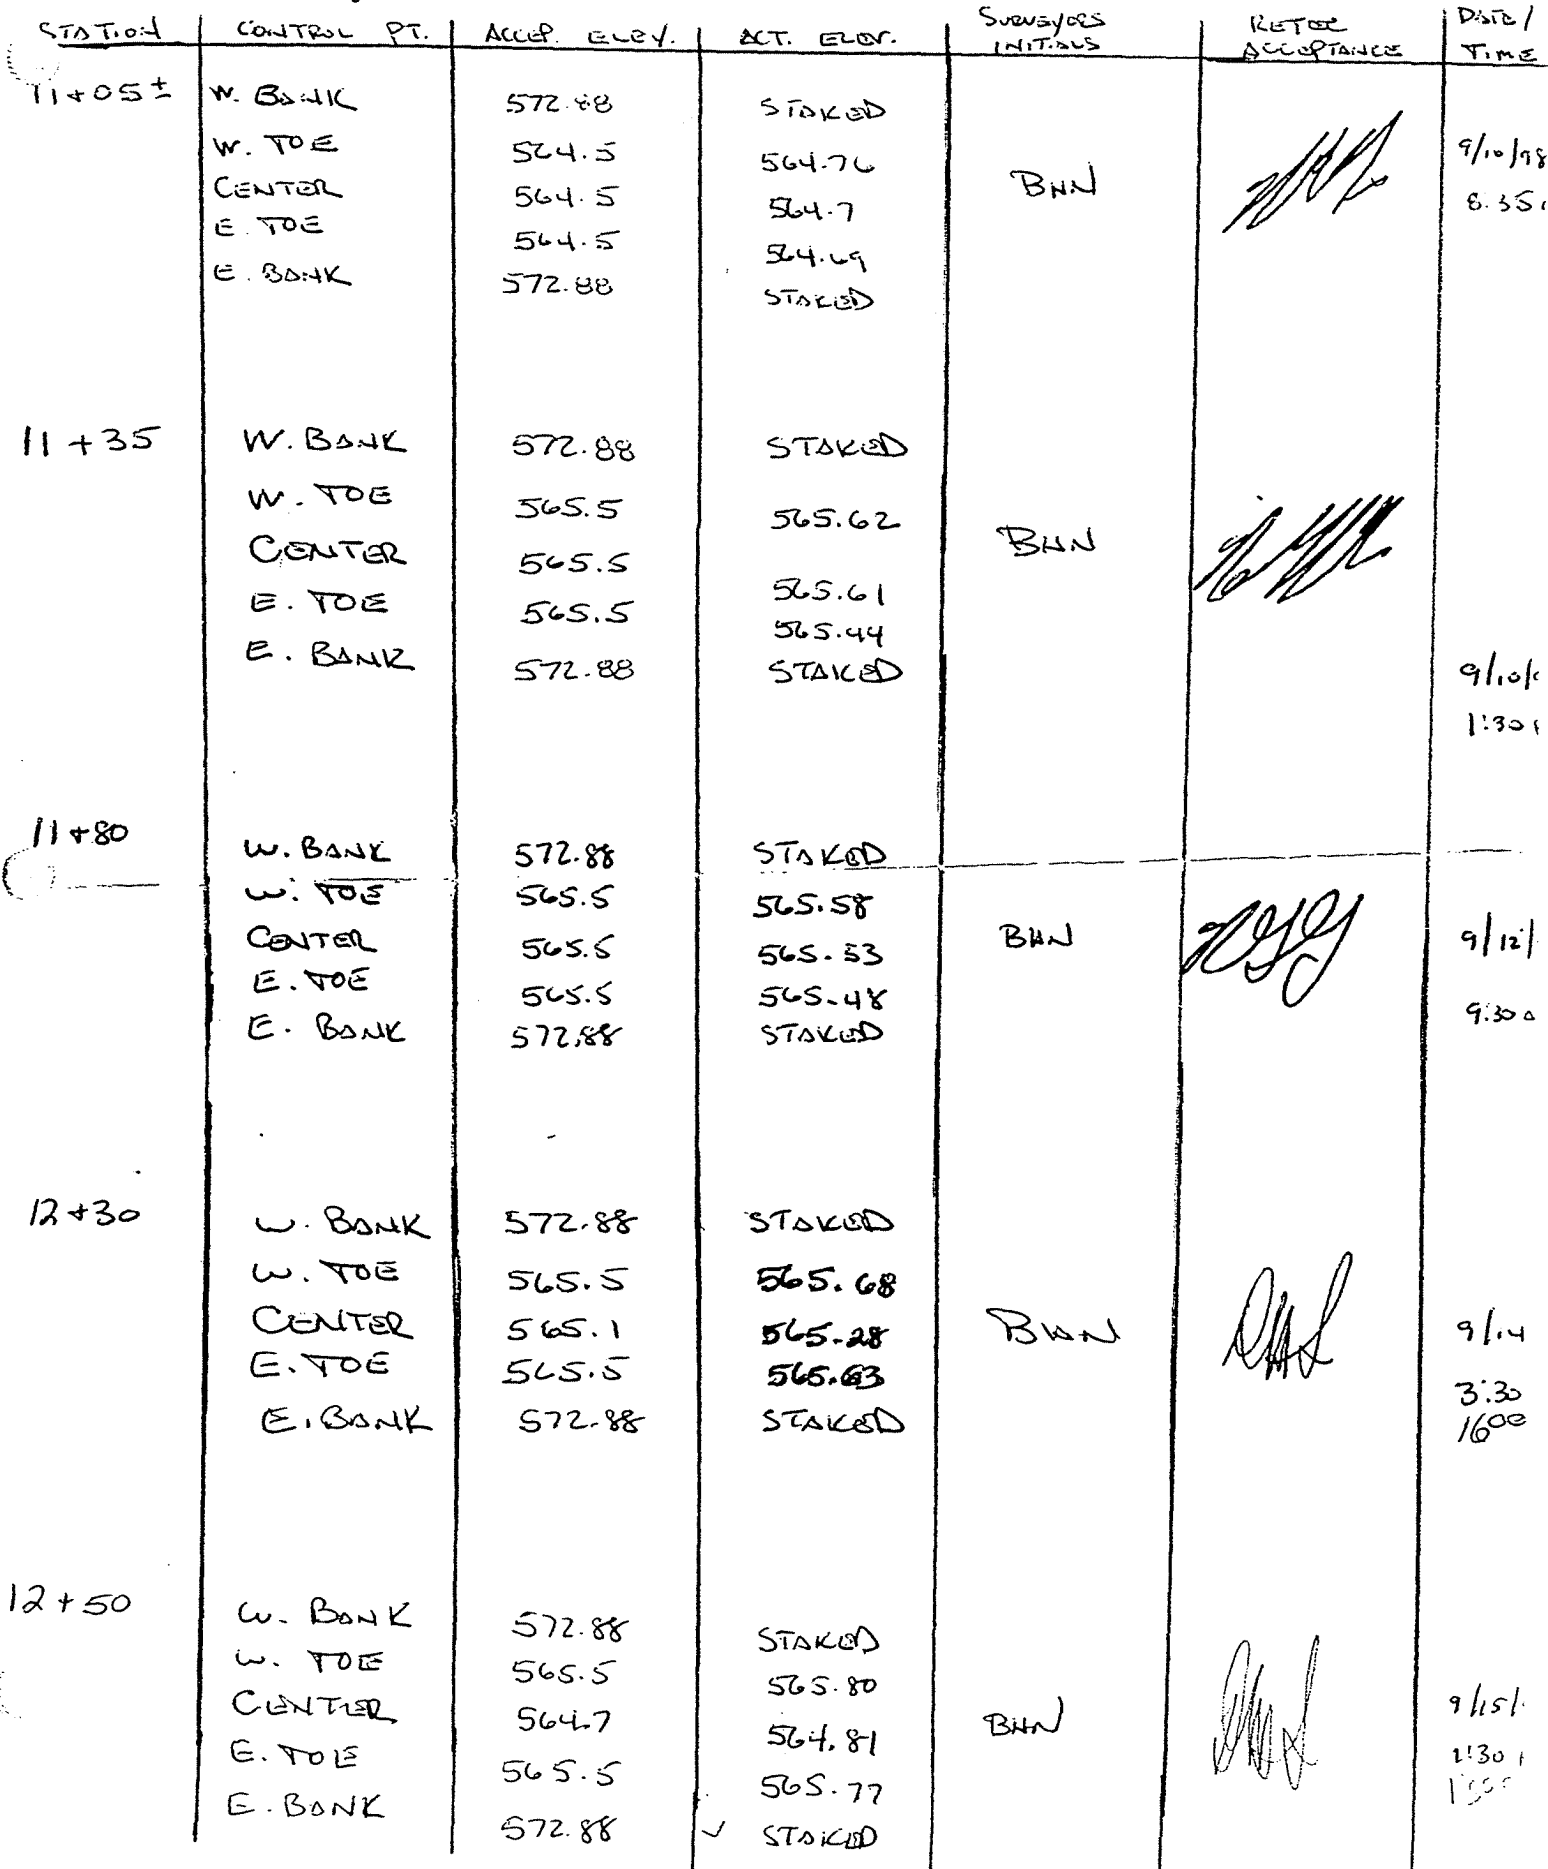 STATION CONTROL PT. ACCEP. ELEV. ACT. ELEV. SURVEYORS INITIALS RETEC ACCEPTANCE DATE/ TIME
11+05± W. BANK 572.88 STAKED
W. TOE 564.5 564.76 9/10/98
CENTER 564.5 564.7 BHN 8:35
E. TOE 564.5 564.69
E. BANK 572.88 STAKED
11+35 W. BANK 572.88 STAKED
W. TOE 565.5 565.62
CENTER 565.5 565.61 BHN
E. TOE 565.5 565.44
E. BANK 572.88 STAKED 9/10/
1:30
11+80 W. BANK 572.88 STAKED
W. TOE 565.5 565.58
CENTER 565.5 565.53 BHN 9/12/
E. TOE 565.5 565.48 9:30 A
E. BANK 572.88 STAKED
12+30 W. BANK 572.88 STAKED
W. TOE 565.5 565.68
CENTER 565.1 565.28 BHN 9/14
E. TOE 565.5 565.63 3:30
E. BANK 572.88 STAKED 1600
12+50 W. BANK 572.88 STAKED
W. TOE 565.5 565.80
CENTER 564.7 564.81 BHN 9/15/
E. TOE 565.5 565.77
E. BANK 572.88 STAKED